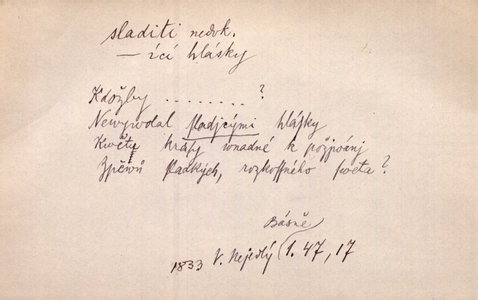 sladiti nedok.
— ící hlásky
Kdožby ........ ?
Newywolal sladjcými hlásky
Kwětu krásy wnadné k pozjwánj
Zpěwů sladkých, rozkossného poeta?
Básně
1833 V. Nejedlý I. 47, 17